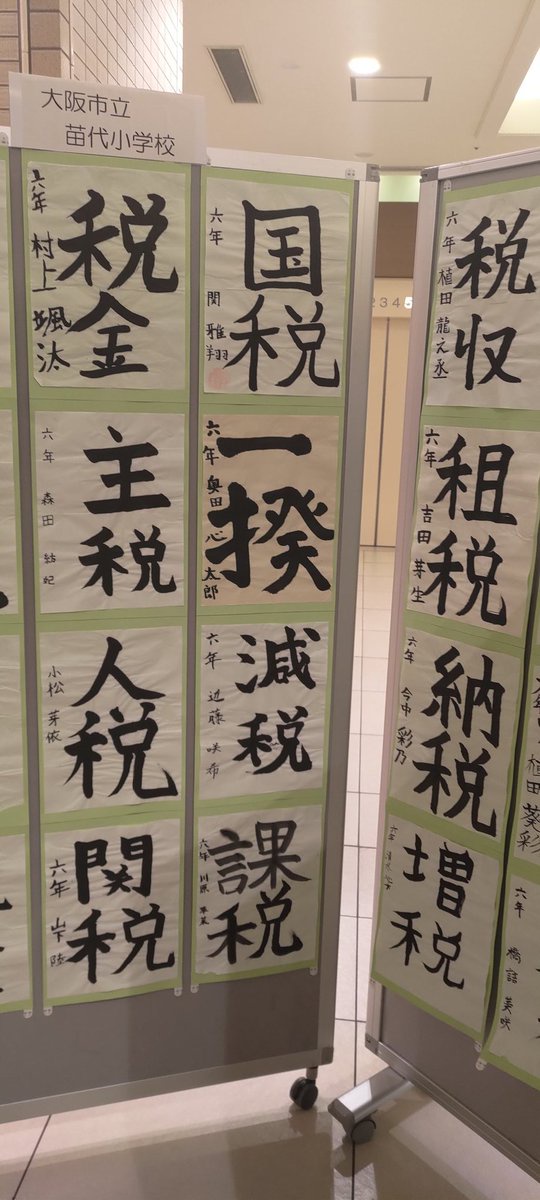 大阪市立
苗代小学校
税金
六年 村上 颯汰
国税
六年 関 雅翔
主税
六年 森田 結妃
一揆
六年 奥田 心太郎
人税
小松 芽依
減税
六年 近藤 咲希
関税
六年 山下 陸
課税
六年 川原
税収
六年 植田 龍之丞
租税
六年 吉田 芽生
納税
六年 今中 彩乃
増税
六年
植田 葵彩
六年 橋詰 美咲
2345